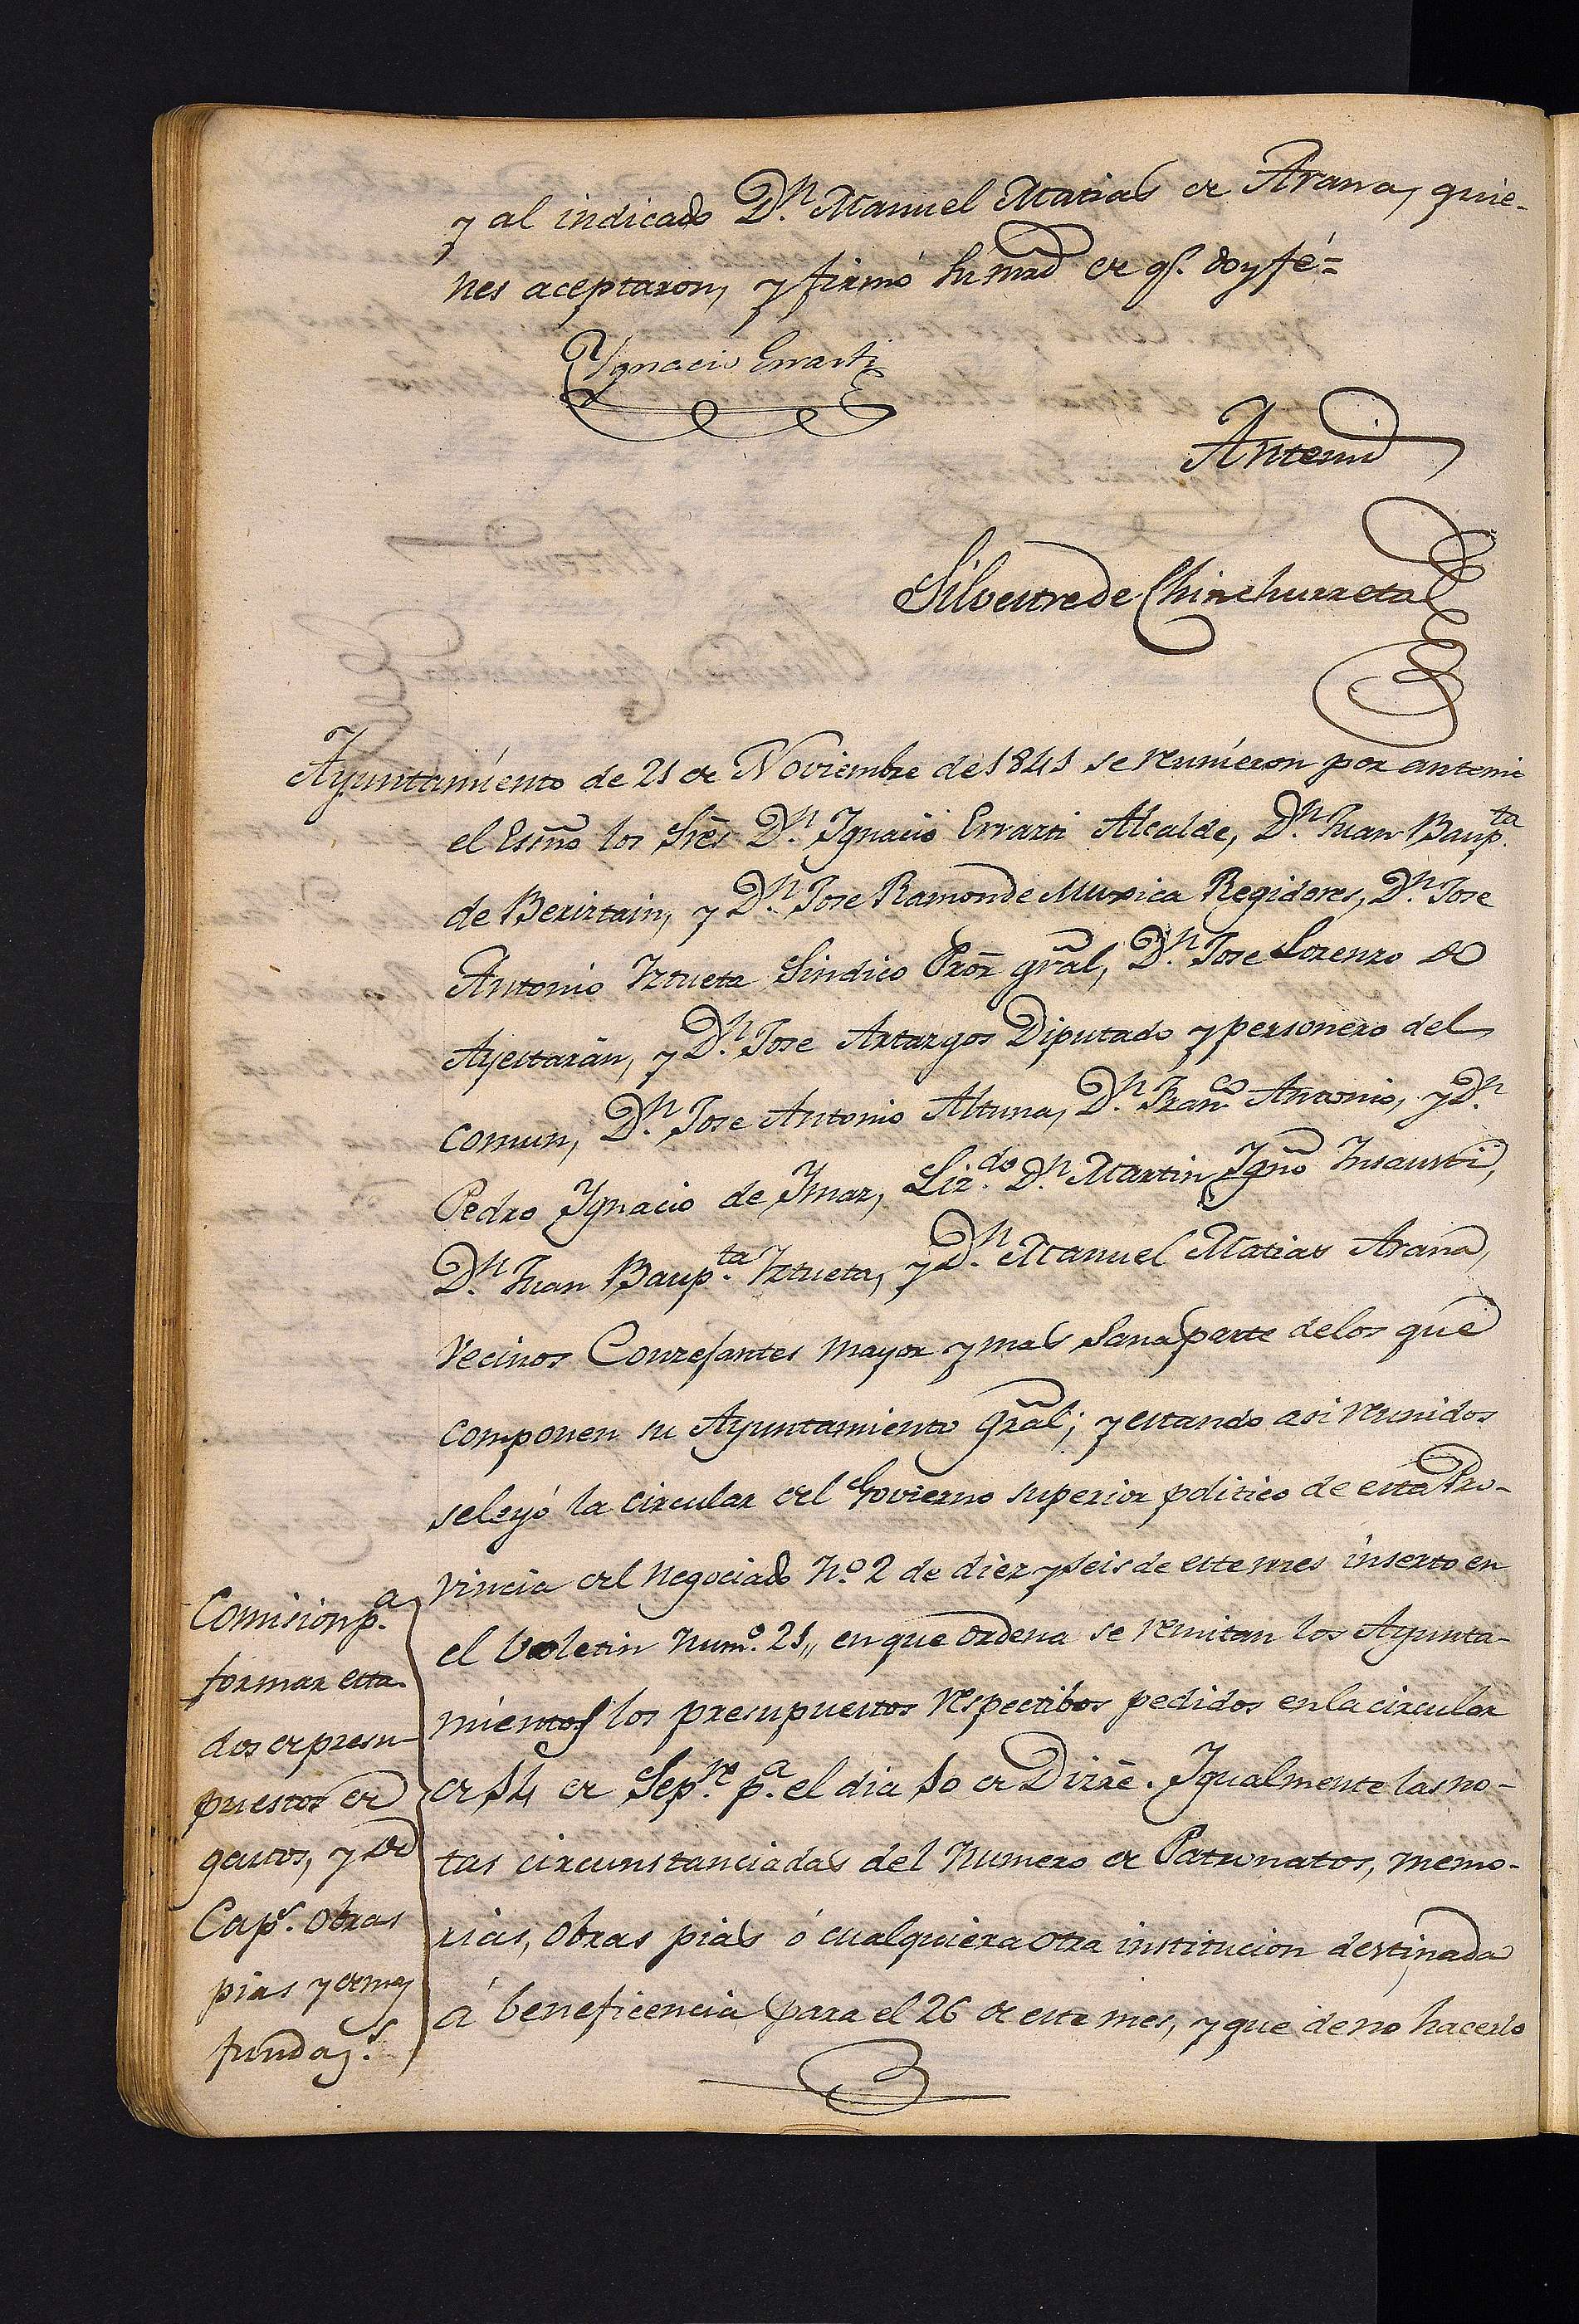 y al indicado D.n Manuel Matias de Arana, quie-
nes aceptaron, y firmó su mrd de q.e doy fé =
Ygnacio Errasti
Antemi
Silvestre de Chinchurreta
Ayuntamiento de 21 de Noviembre de 1841 se reunieron por antemi
el Essño los Srēs D.n Ignacio Errazti Alcalde, D.n Juan Baup.ta
de Beriztain, y D.n Jose Ramon de Muxica Regidores, D.n Jose
Antonio Iztueta Sindico Prōr grāl, D.n Jose Lorenzo de
Ayestarán, y D.n Jose Artazgos Diputado y personero del
comun, D.n Jose Antonio Altuna, D.n Fran.co Antonio, y D.n
Pedro Ygnacio de Imaz, Liz.do D.n Martin Ygñō Insausti,
D.n Juan Baup.ta Iztueta, y D.n Manuel Matias Arana,
Vecinos Conzejantes mayor y mas sana parte de los que
componen su Ayuntamiento Grāl; y estando asi reunidos
se leyó la circular del Govierno superior politico de esta Pro-
vincia del Negociado N.o 2 de diez y seis de este mes inserto en
el boletin Num.o 21,, en que ordena se remitan los Ayunta-
mientos los presupuestos respectibos pedidos en la circular
de 14 de Sep.re p.a el dia 10 de Dizrē. Igualmente las no-
tas circunstanciadas del Numero de Patronatos, memo-
rias, obras pias ó cualquiera otra institucion destinada
á beneficencia para el 26 de este mes, y que de no hacerlo
Comision p.a
formar esta-
dos de presu-
puestos de
gastos, y de
Cap.s obras
pias y demas
fundaz.s